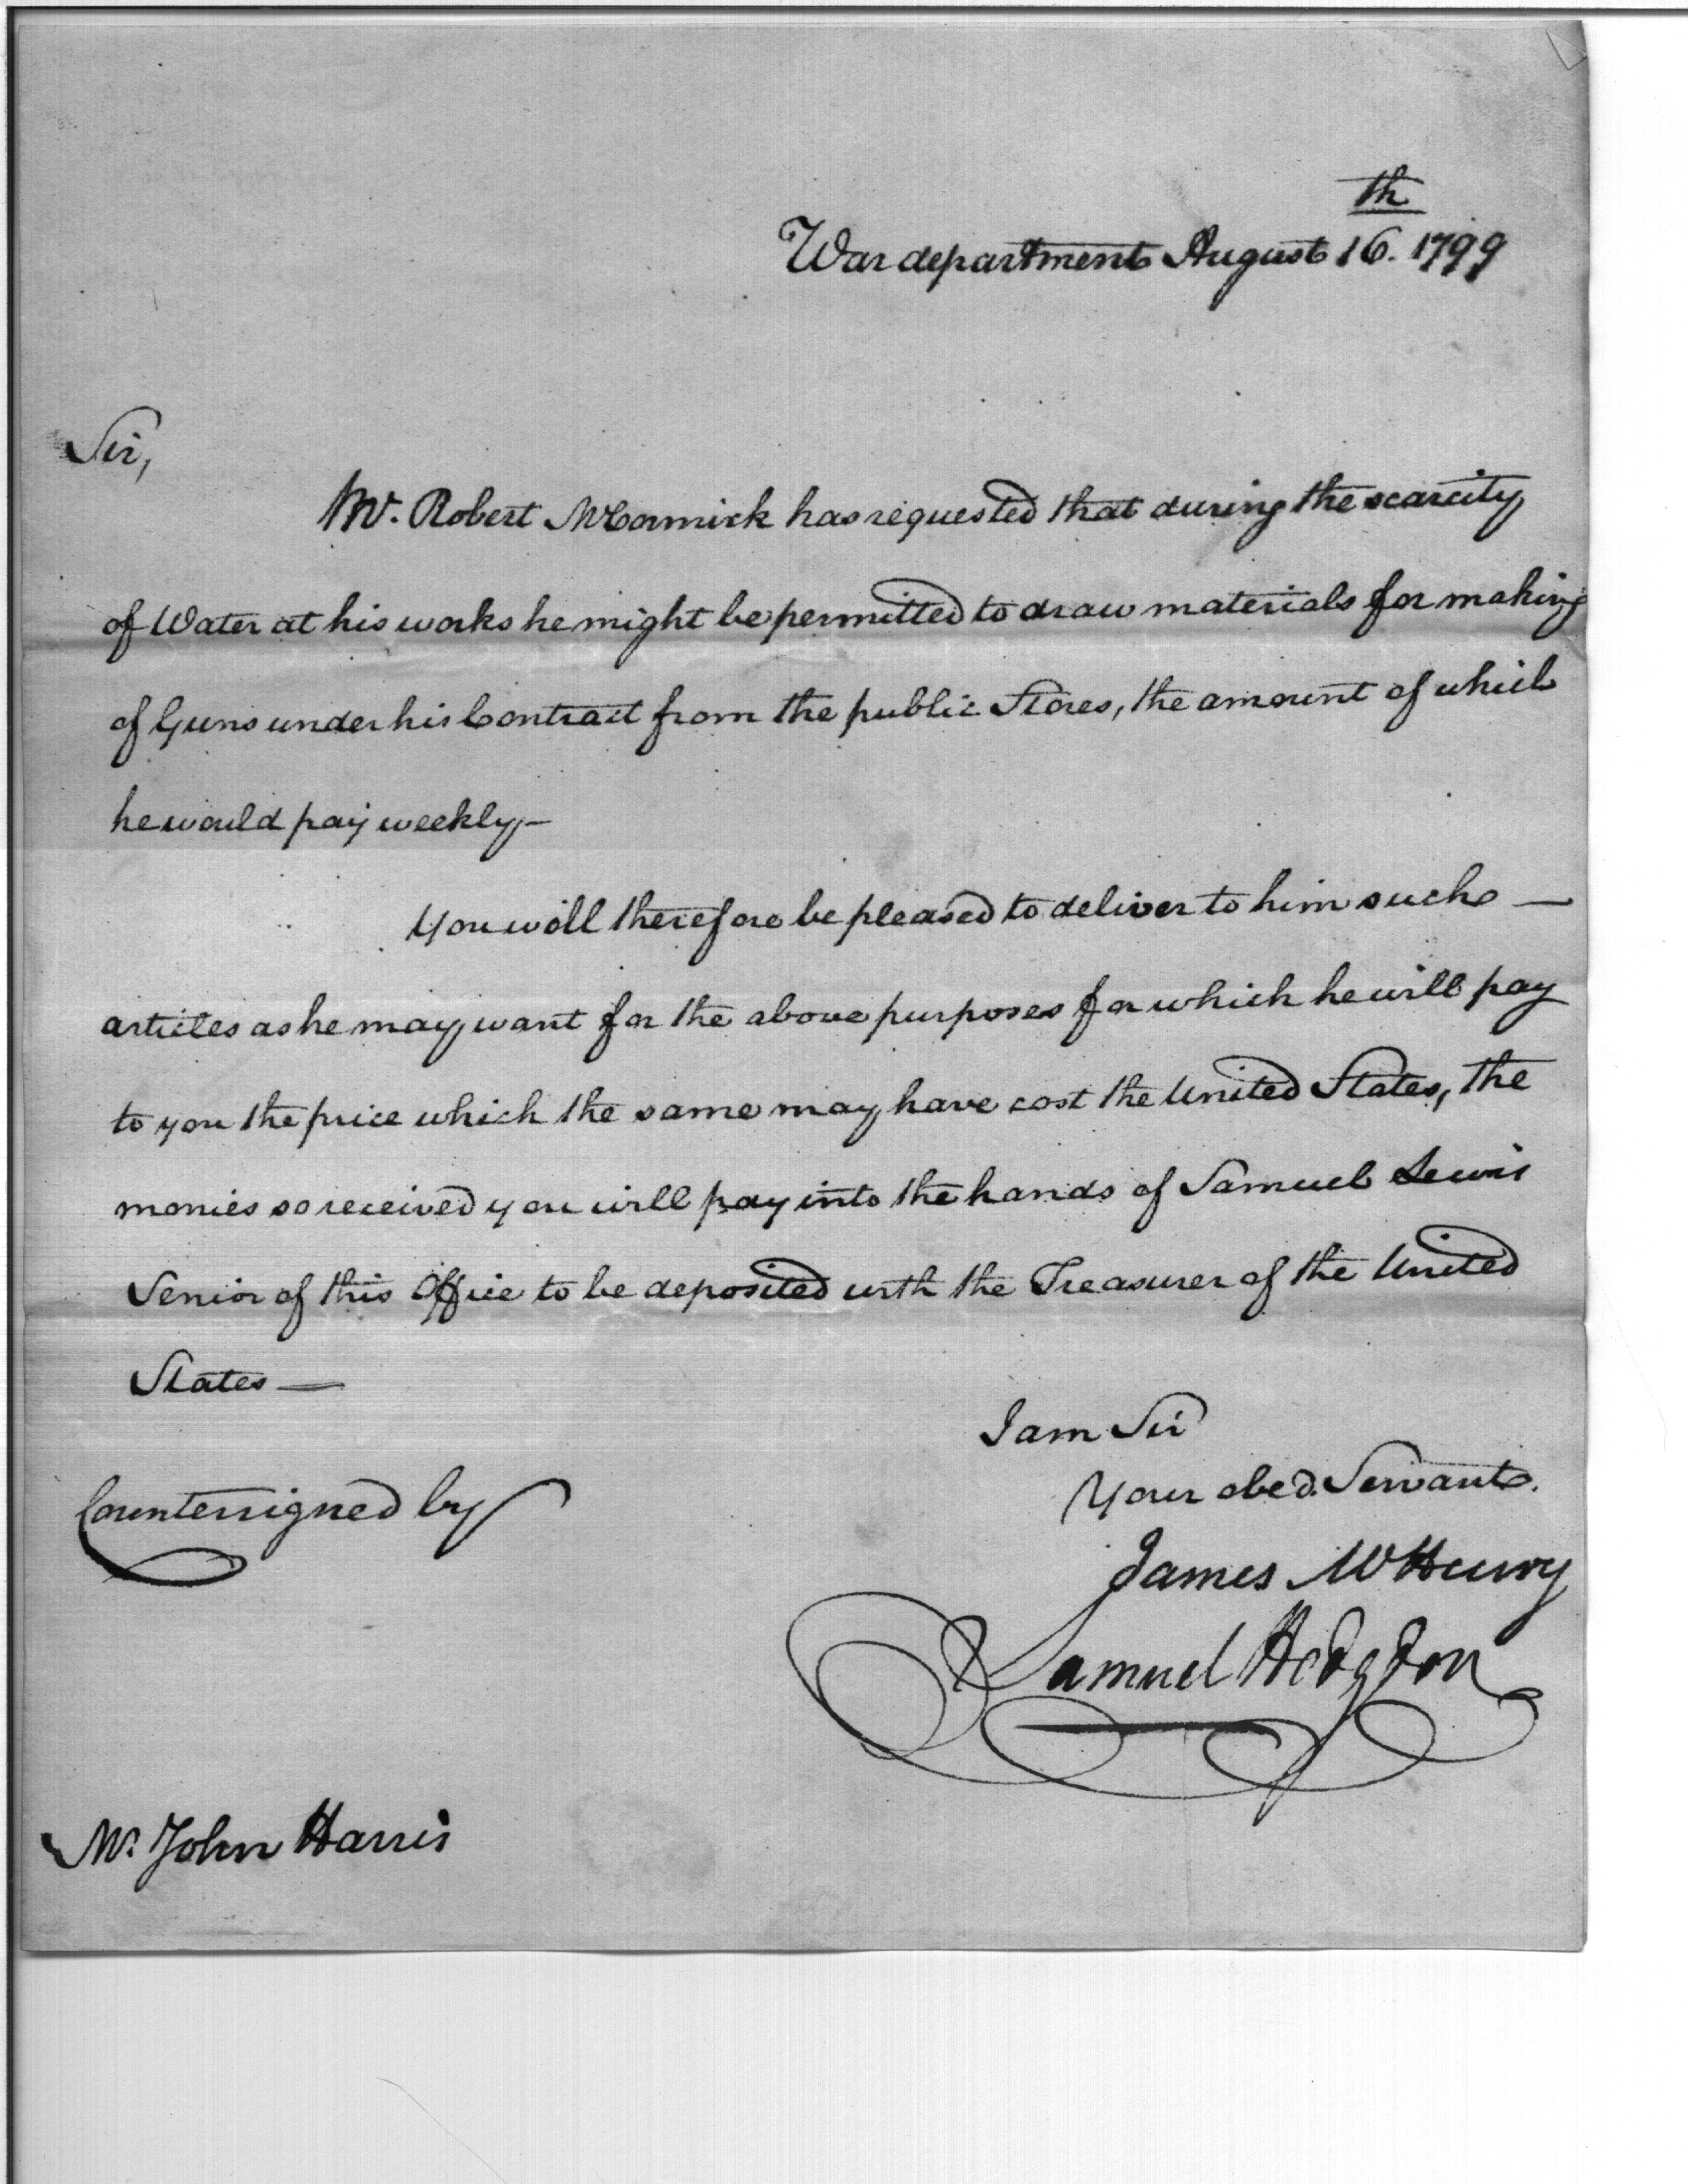 th
War department August 16. 1799
Sir,
Mr. Robert McCormick has requested that during the scarcity
of Water at his works he might be permitted to draw materials for making
of Guns under his Contract from the public Stores, the amount of which
he would pay weekly—
You will therefore be pleased to deliver to him such —
articles as he may want for the above purposes for which he will pay
to you the price which the same may have cost the United States, the
monies so received you will pay into the hands of Samuel Lewis
Senior of this Office to be deposited with the Treasurer of the United
States —
I am Sir
Your obed. Servant.
Countersigned by
James McHenry
Samuel Hodgdon
Mr. John Harris